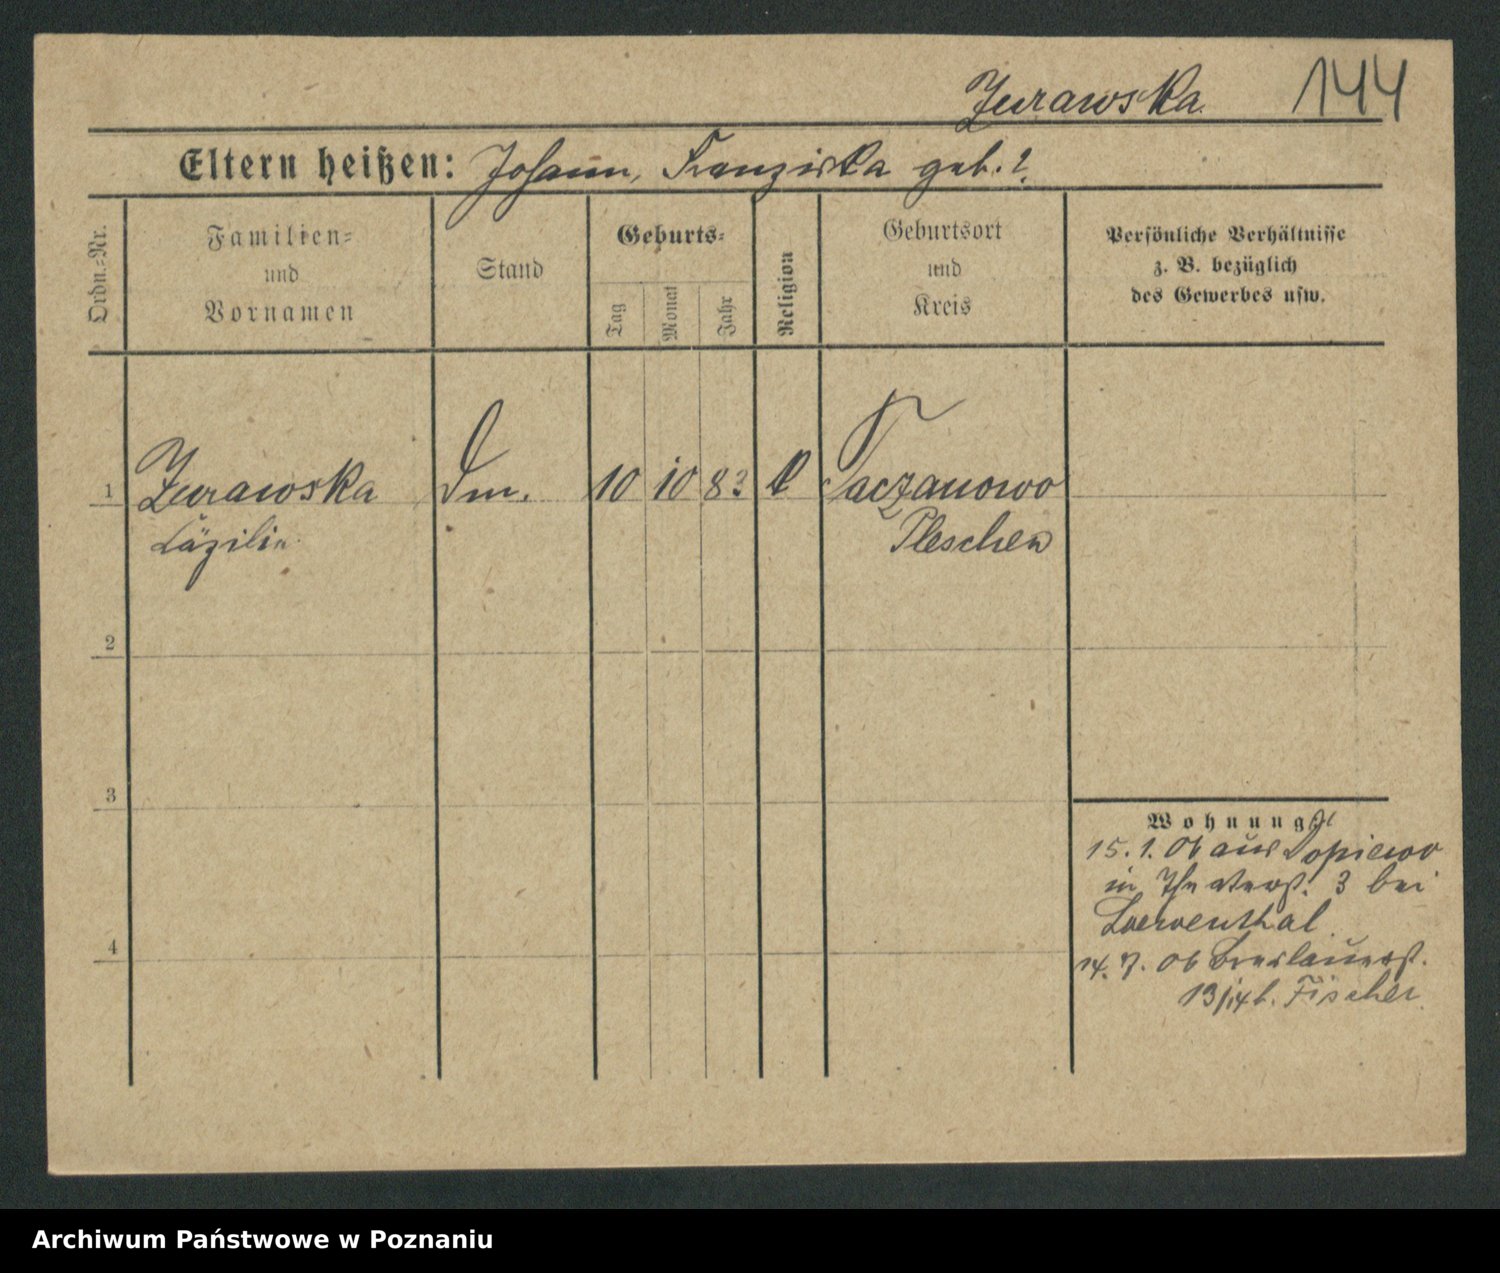 Zurawska 144
Eltern heißen: Johann, Franziska geb. ?
Ordn.-Nr.
Familien-
und
Vornamen
Stand
Geburts-
Tag
Monat
Jahr
Religion
Geburtsort
und
Kreis
Persönliche Verhältnisse
z. B. bezüglich
des Gewerbes usw.
1 Zurawska Dm. 10 10 83 k Taczanowo
Cäzilie Pleschen
2
3
4
Wohnung:
15. 1. 06 aus Dopiewo
in Theaterst. 3 bei
Loewenthal
14. 7. 06 Breslauerst.
13/14 b. Fischer
Archiwum Państwowe w Poznaniu